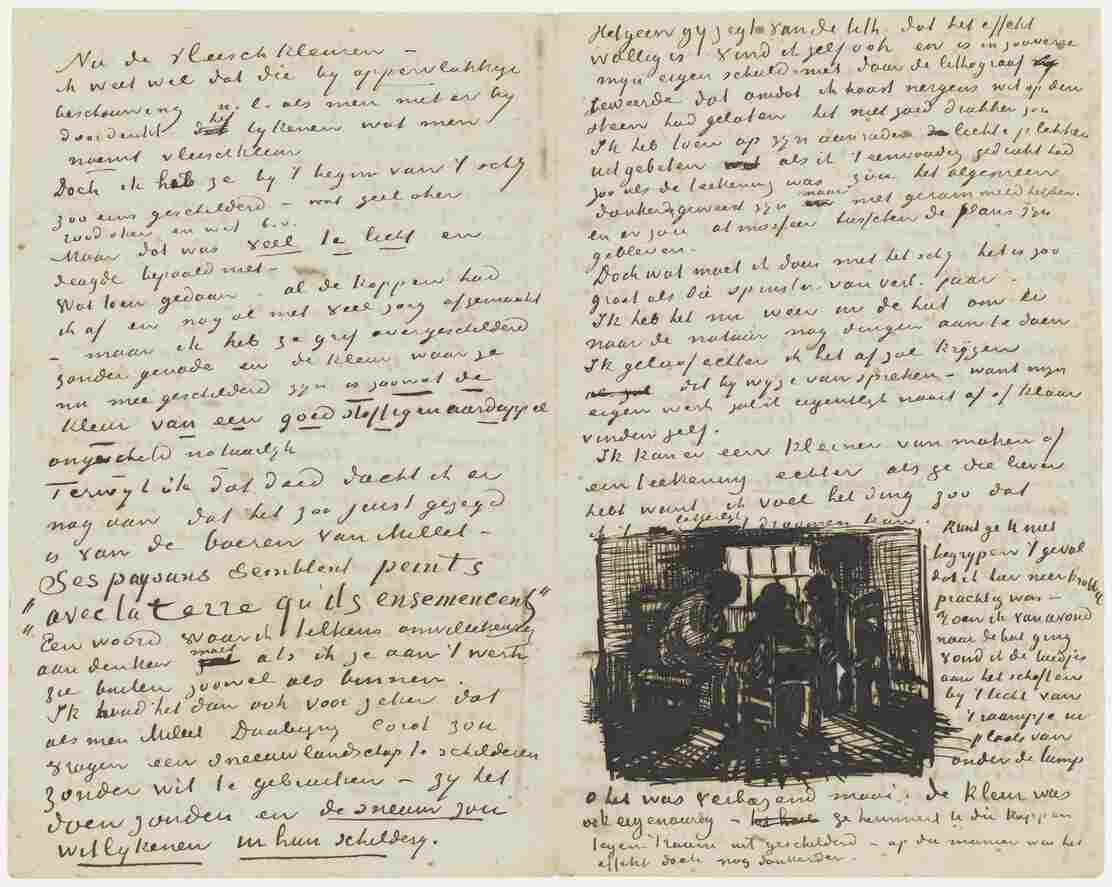 Nu de vleeschkleuren –
ik weet wel dat die by oppervlakkige
beschouwing n.l. als men niet er by
doordenkt het lykenen wat men
noemt vleeschkleur
Doch ik heb ze by 't begin van 't schy
zoo eens geschilderd – wat geel oker
rood oker en wit b.v.
Maar dat was veel te licht en
deugde bepaald niet –
Wat toen gedaan – al de koppen had
ik af en nog al met veel zorg afgemaakt
– maar ik heb ze grif overgeschilderd
zonder genade en de kleur waar ze
nu mee geschilderd zyn is zoowat de
kleur van een goed stoffigen aardappel
ongescheld natuurlyk
Terwyl ik dat deed dacht ik er
nog aan dat het zoo juist gezegd
is van de boeren van Millet –
Ses paysans semblent peints
"avec la terre qu'ils ensemencent"
" Een woord waar ik telkens onwillekeurig
aan denken moet als ik ze aan 't werk
zie buiten zoowel als binnen.
Ik houd het dan ook voor zeker dat
als men Millet Daubigny Corot zou
vragen een sneeuwlandschap te schilderen
zonder wit te gebruiken – zy het
doen zouden en de sneeuw zou
wit lykenen in hun schildery.
Hetgeen gy zegt van de lith. dat het effekt
wollig is vind ik zelf ook en is in zooverre
myn eigen schuld niet daar de lithograaf
beweerde dat omdat ik haast nergens wit op den
steen had gelaten het niet goed drukken zou
Ik heb toen op zyn aanraden lichte plekken
uit gebeten als ik 't eenvoudig gedrukt had
zoo als de teekening was zou het algemeen
donkerder geweest zyn maar niet gerammeld hebben.
en er zou atmosfeer tusschen de plans zyn
gebleven.
Doch wat moet ik doen met het schy het is zoo
groot als die spinster van verl. jaar.
Ik heb het nu weer in de hut om er
naar de natuur nog dingen aan te doen
Ik geloof echter ik het af zal krygen
dit by wyze van spreken – want myn
eigen werk zal ik eigentlyk nooit af of klaar
vinden zelf.
Ik kan er een kleiner van maken of
een teekening echter als ge die liever
hebt want ik voel het ding zoo dat
ik 't letterlyk droomen kan.
Kunt ge U niet
begrypen 't geval
dat ik hier neer krabbel
prachtig was –
Toen ik van avond
naar de hut ging
vond ik de luidjes
aan het schoften
by 't licht van
't raampje in
plaats van
onder de lamp
O het was verbazend mooi. De kleur was
ook eigenaardig – ge herinnert U die koppen
tegen 't raam uit geschilderd – op die manier was het
effekt doch nog donkerder.